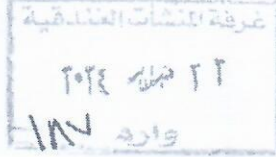 غرفة المنشآت الفندقية
٢٢ يناير ٢٠٢٤
وارد ١٨٧